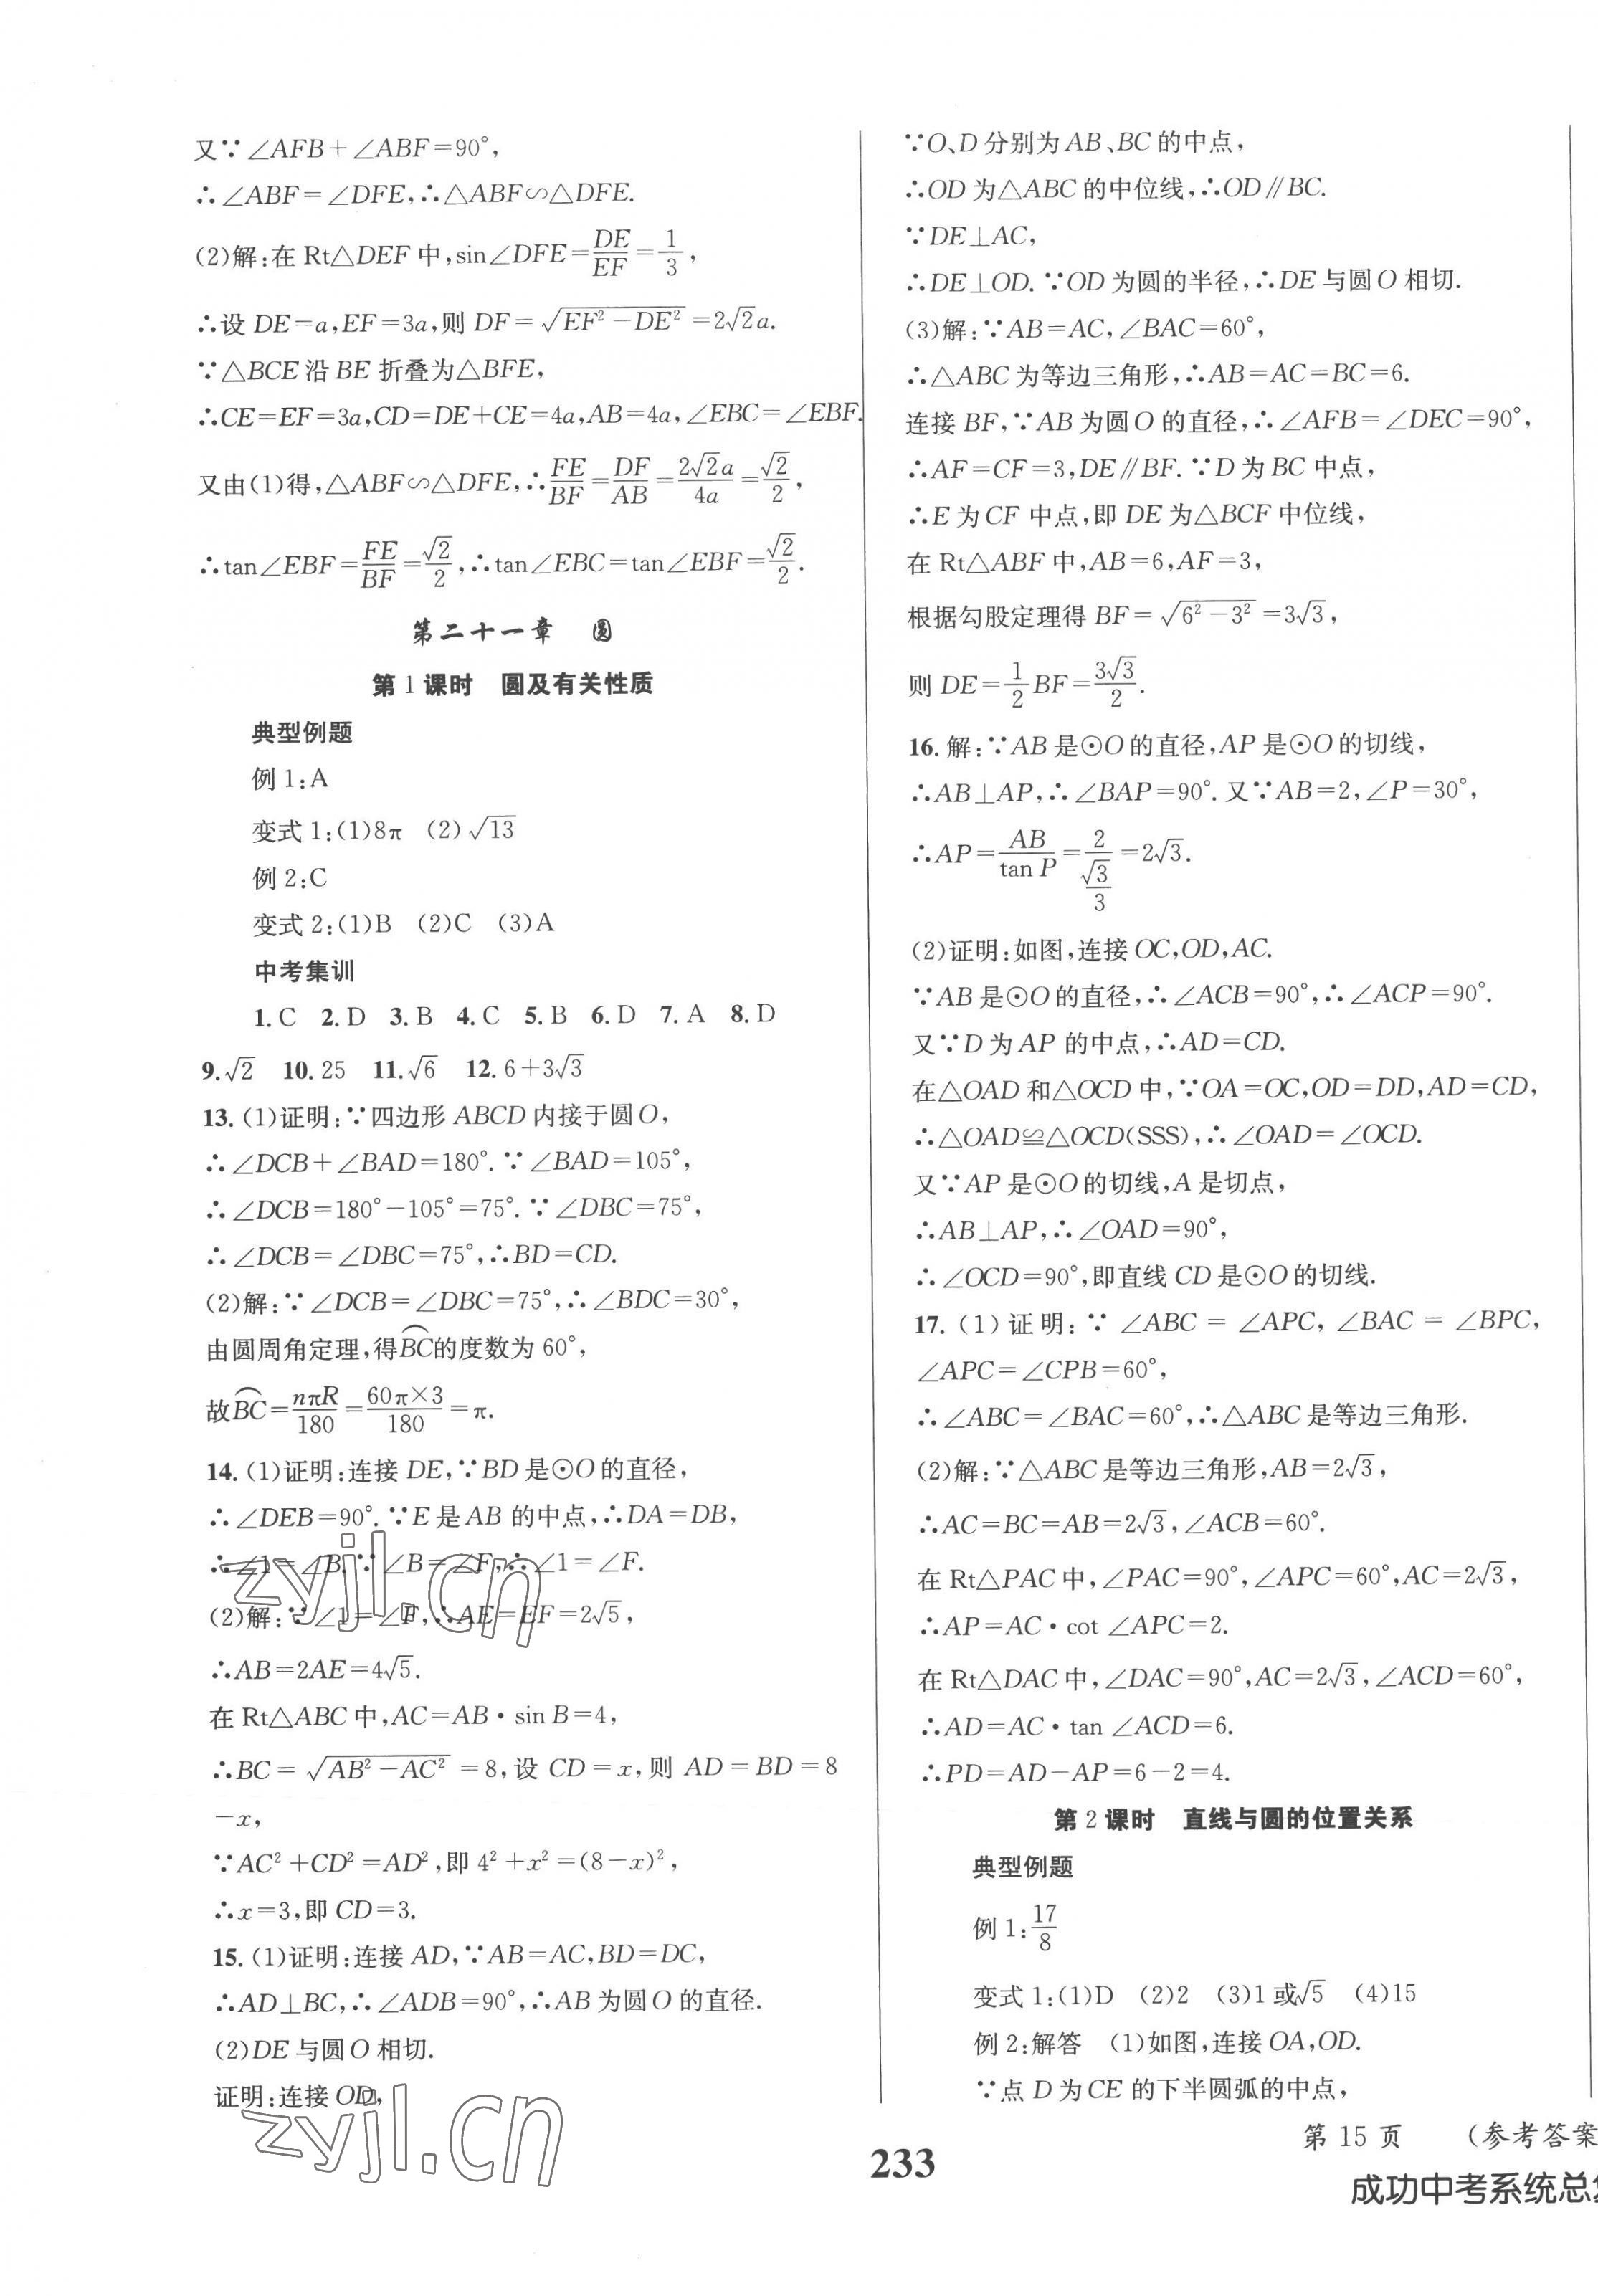 又∵∠AFB+∠ABF=90°,
∴∠ABF=∠DFE,∴△ABF∽△DFE.
(2)解:在 Rt△DEF 中,sin∠DFE=DE/EF=1/3,
∴设 DE=a,EF=3a,则 DF=√(EF²-DE²)=2√2a.
∵△BCE 沿 BE 折叠为△BFE,
∴CE=EF=3a,CD=DE+CE=4a,AB=4a,∠EBC=∠EBF.
又由(1)得,△ABF∽△DFE,∴FE/BF=DF/AB=2√2a/4a=√2/2,
∴tan∠EBF=FE/BF=√2/2,∴tan∠EBC=tan∠EBF=√2/2.
第二十一章 圆
第 1 课时 圆及有关性质
典型例题
例 1:A
变式 1:(1)8π (2)√13
例 2:C
变式 2:(1)B (2)C (3)A
中考集训
1. C 2. D 3. B 4. C 5. B 6. D 7. A 8. D
9.√2 10. 25 11.√6 12. 6+3√3
13. (1)证明:∵四边形 ABCD 内接于圆 O,
∴∠DCB+∠BAD=180°.∵∠BAD=105°,
∴∠DCB=180°-105°=75°.∵∠DBC=75°,
∴∠DCB=∠DBC=75°,∴BD=CD.
(2)解:∵∠DCB=∠DBC=75°,∴∠BDC=30°,
由圆周角定理,得⌒BC的度数为 60°,
故⌒BC=nπR/180=60π×3/180=π.
14. (1)证明:连接 DE,∵BD 是⊙O 的直径,
∴∠DEB=90°.∵E 是 AB 的中点,∴DA=DB,
∴∠1=∠B.∵∠B=∠F,∴∠1=∠F.
(2)解:∵∠1=∠F,∴AE=EF=2√5,
∴AB=2AE=4√5.
在 Rt△ABC 中,AC=AB·sin B=4,
∴BC=√(AB²-AC²)=8,设 CD=x,则 AD=BD=8
-x,
∵AC²+CD²=AD²,即 4²+x²=(8-x)²,
∴x=3,即 CD=3.
15. (1)证明:连接 AD,∵AB=AC,BD=DC,
∴AD⊥BC,∴∠ADB=90°,∴AB 为圆 O 的直径.
(2)DE 与圆 O 相切.
证明:连接 OD,
∵O、D 分别为 AB、BC 的中点,
∴OD 为△ABC 的中位线,∴OD∥BC.
∵DE⊥AC,
∴DE⊥OD.∵OD 为圆的半径,∴DE 与圆 O 相切.
(3)解:∵AB=AC,∠BAC=60°,
∴△ABC 为等边三角形,∴AB=AC=BC=6.
连接 BF,∵AB 为圆 O 的直径,∴∠AFB=∠DEC=90°,
∴AF=CF=3,DE∥BF.∵D 为 BC 中点,
∴E 为 CF 中点,即 DE 为△BCF 中位线,
在 Rt△ABF 中,AB=6,AF=3,
根据勾股定理得 BF=√(6²-3²)=3√3,
则 DE=1/2BF=3√3/2.
16. 解:∵AB 是⊙O 的直径,AP 是⊙O 的切线,
∴AB⊥AP,∴∠BAP=90°.又∵AB=2,∠P=30°,
∴AP=AB/tan P=2/(√3/3)=2√3.
(2)证明:如图,连接 OC,OD,AC.
∵AB 是⊙O 的直径,∴∠ACB=90°,∴∠ACP=90°.
又∵D 为 AP 的中点,∴AD=CD.
在△OAD 和△OCD 中,∵OA=OC,OD=DD,AD=CD,
∴△OAD≌△OCD(SSS),∴∠OAD=∠OCD.
又∵AP 是⊙O 的切线,A 是切点,
∴AB⊥AP,∴∠OAD=90°,
∴∠OCD=90°,即直线 CD 是⊙O 的切线.
17. (1)证明:∵∠ABC=∠APC,∠BAC=∠BPC,
∠APC=∠CPB=60°,
∴∠ABC=∠BAC=60°,∴△ABC 是等边三角形.
(2)解:∵△ABC 是等边三角形,AB=2√3,
∴AC=BC=AB=2√3,∠ACB=60°.
在 Rt△PAC 中,∠PAC=90°,∠APC=60°,AC=2√3,
∴AP=AC·cot∠APC=2.
在 Rt△DAC 中,∠DAC=90°,AC=2√3,∠ACD=60°,
∴AD=AC·tan∠ACD=6.
∴PD=AD-AP=6-2=4.
第 2 课时 直线与圆的位置关系
典型例题
例 1:17/8
变式 1:(1)D (2)2 (3)1 或√5 (4)15
例 2:解答 (1)如图,连接 OA,OD.
∵点 D 为 CE 的下半圆弧的中点,
zyjl.cn
zyjl.cn
233
第 15 页 (参考答案
成功中考系统总